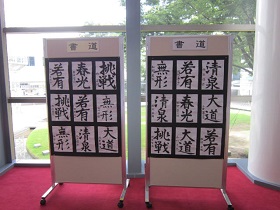 書道
若有 春光 挑戦
挑戦 若有 無形
無形 清泉 大道
書道
無形 若有 清泉
清泉 挑戦 大道
挑戦 大道 若有